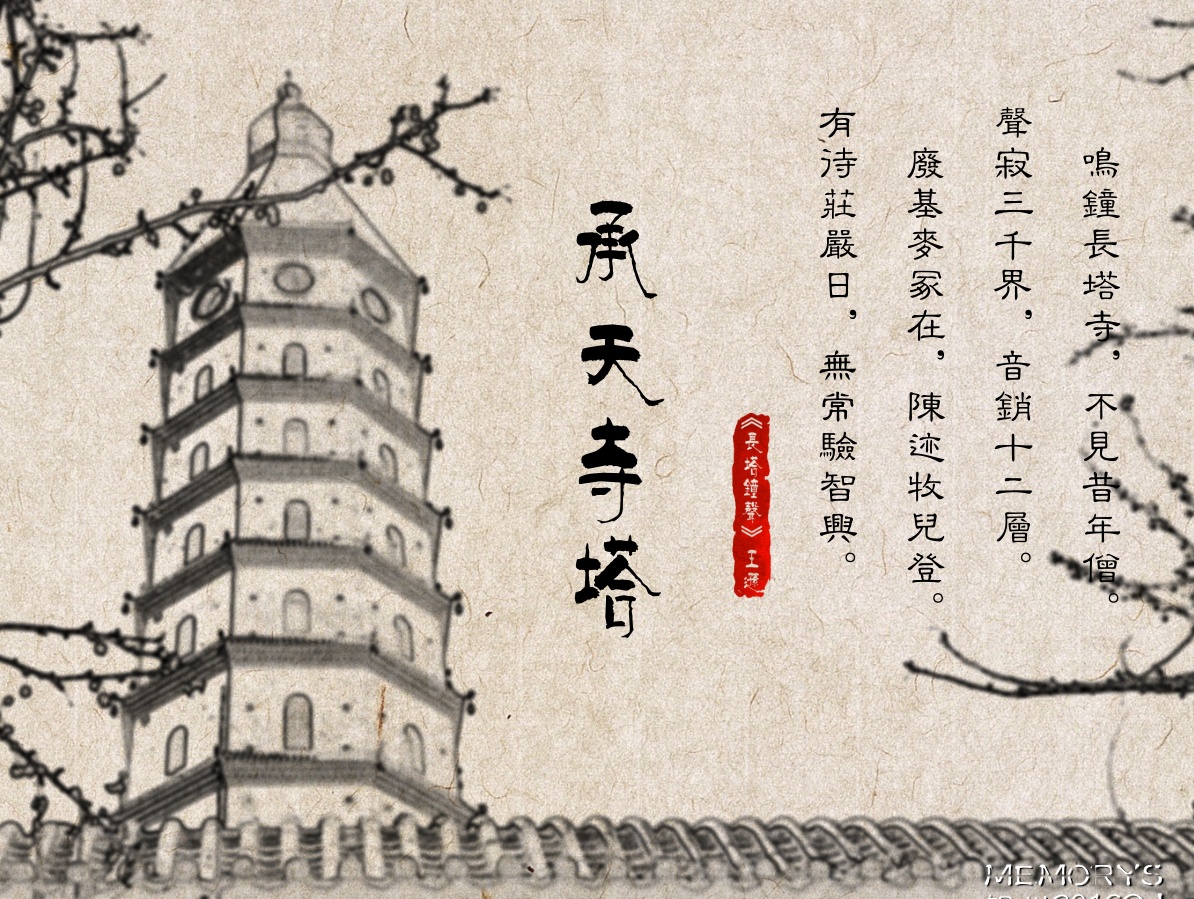 鳴鐘長塔寺，不見昔年僧。
聲寂三千界，音銷十二層。
廢基麥冢在，陳迹牧兒登。
有待莊嚴日，無常驗智興。
《長塔鐘聲》王遜
承天寺塔
MEMORY'S